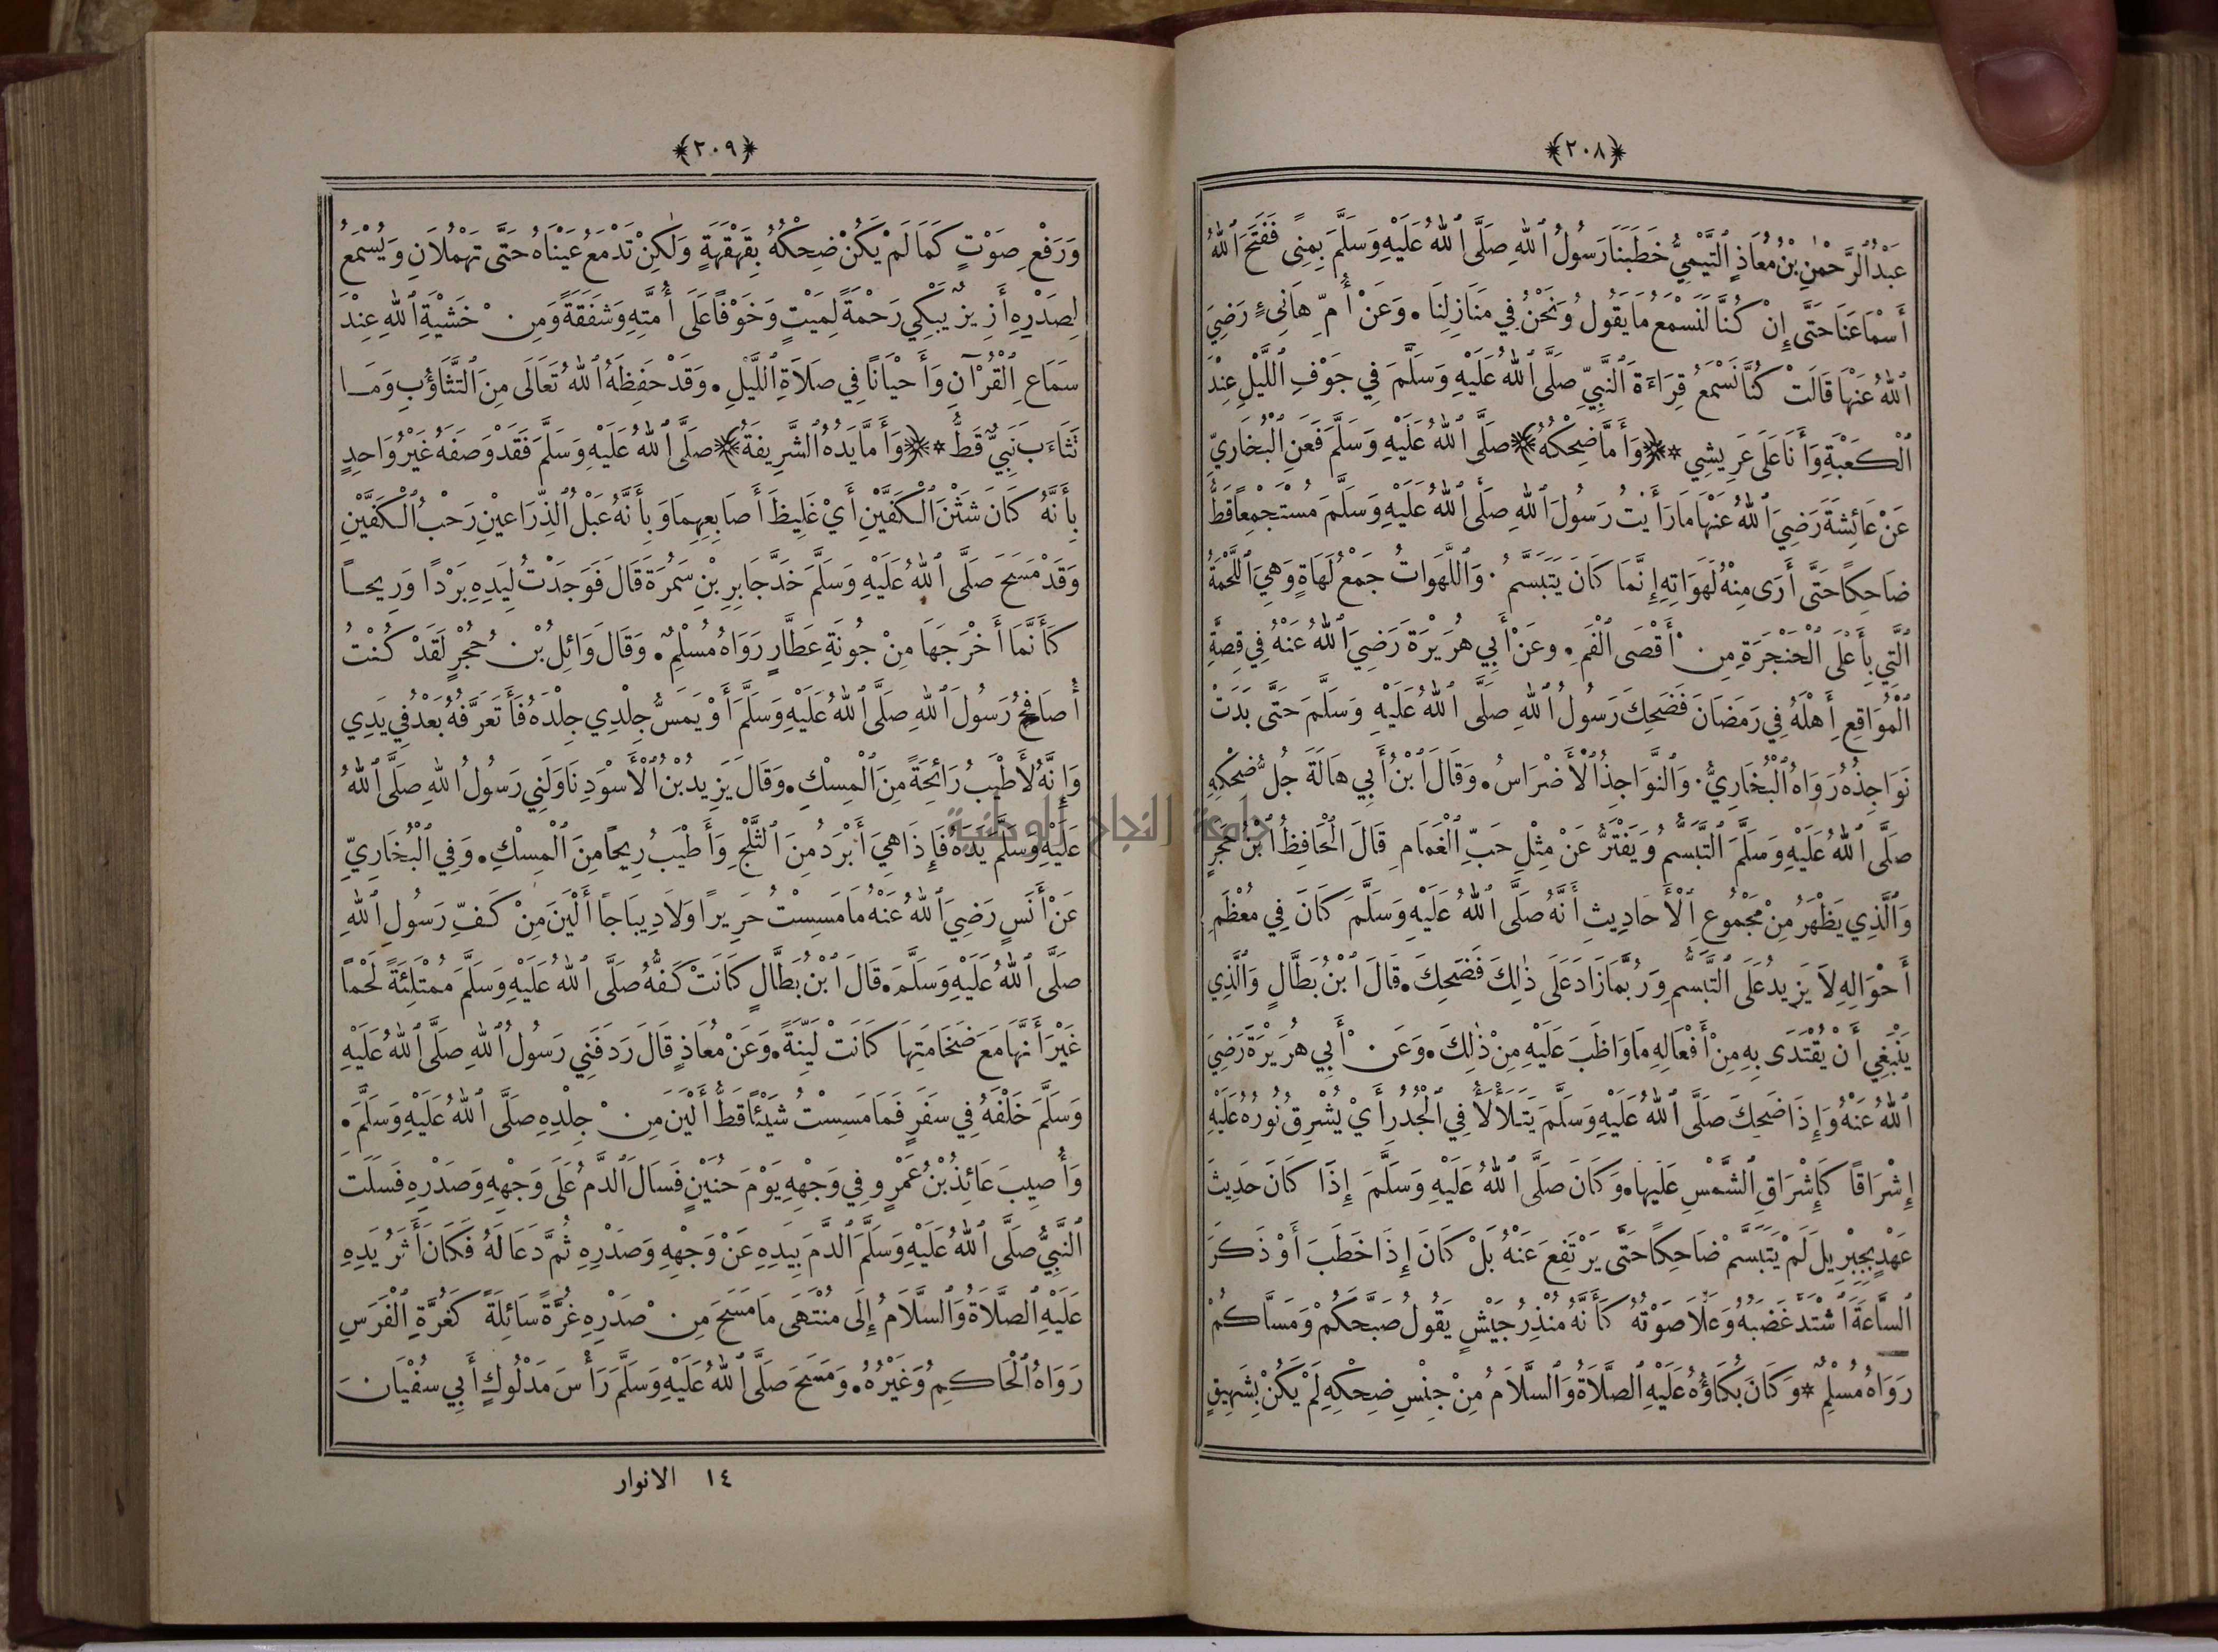 ﴿٢٠٨﴾
عَبْدُ ٱلرَّحْمٰنِ بْنُ مُعَاذٍ ٱلتَّيْمِيُّ خَطَبَنَا رَسُولُ ٱللهِ صَلَّى ٱللهُ عَلَيْهِ وَسَلَّمَ بِمِنًى فَفَتَحَ ٱللهُ
أَسْمَاعَنَا حَتَّى إِنْ كُنَّا لَنَسْمَعُ مَا يَقُولُ وَنَحْنُ فِي مَنَازِلِنَا ۰ وَعَنْ أُمِّ هَانِئٍ رَضِيَ
ٱللهُ عَنْهَا قَالَتْ كُنَّا نَسْمَعُ قِرَاءَةَ ٱلنَّبِيِّ صَلَّى ٱللهُ عَلَيْهِ وَسَلَّمَ فِي جَوْفِ ٱللَّيْلِ عِنْدَ
ٱلْكَعْبَةِ وَأَنَا عَلَى عَرِيشِي * ﴿وَأَمَّا ضِحِكُهُ﴾ صَلَّى ٱللهُ عَلَيْهِ وَسَلَّمَ فَعَنِ ٱلْبُخَارِيِّ
عَنْ عَائِشَةَ رَضِيَ ٱللهُ عَنْهَا مَا رَأَيْتُ رَسُولَ ٱللهِ صَلَّى ٱللهُ عَلَيْهِ وَسَلَّمَ مُسْتَجْمِعًا قَطُّ
ضَاحِكًا حَتَّى أَرَى مِنْهُ لَهَوَاتِهِ إِنَّمَا كَانَ يَتَبَسَّمُ ۰ وَٱللَّهَوَاتُ جَمْعُ لَهَاةٍ وَهِيَ ٱللَّحْمَةُ
ٱلَّتِي بِأَعْلَى ٱلْحَنْجَرَةِ مِنْ أَقْصَى ٱلْفَمِ ۰ وعَنْ أَبِي هُرَيْرَةَ رَضِيَ ٱللهُ عَنْهُ فِي قِصَّةِ
ٱلْمُوَاقِعِ أَهْلَهُ فِي رَمَضَانَ فَضَحِكَ رَسُولُ ٱللهِ صَلَّى ٱللهُ عَلَيْهِ وَسَلَّمَ حَتَّى بَدَتْ
نَوَاجِذُهُ رَوَاهُ ٱلْبُخَارِيُّ ۰ وَٱلنَّوَاجِذُ ٱلْأَضْرَاسُ ۰ وَقَالَ ٱبْنُ أَبِي هَالَةَ جُلُّ ضِحْكِهِ
صَلَّى ٱللهُ عَلَيْهِ وَسَلَّمَ ٱلتَّبَسُّمُ وَيَفْتَرُّ عَنْ مِثْلِ حَبِّ ٱلْغَمَامِ قَالَ ٱلْحَافِظُ ٱبْنُ حَجَرٍ
وَٱلَّذِي يَظْهَرُ مِنْ مَجْمُوعِ ٱلْأَحَادِيثِ أَنَّهُ صَلَّى ٱللهُ عَلَيْهِ وَسَلَّمَ كَانَ فِي مُعْظَمِ
أَحْوَالِهِ لَا يَزِيدُ عَلَى ٱلتَّبَسُّمِ وَرُبَّمَا زَادَ عَلَى ذٰلِكَ فَضَحِكَ ۰ قَالَ ٱبْنُ بَطَّالٍ وَٱلَّذِي
يَنْبَغِي أَنْ يُقْتَدَى بِهِ مِنْ أَفْعَالِهِ مَا وَاظَبَ عَلَيْهِ مِنْ ذٰلِكَ ۰ وَعَنْ أَبِي هُرَيْرَةَ رَضِيَ
ٱللهُ عَنْهُ وَإِذَا ضَحِكَ صَلَّى ٱللهُ عَلَيْهِ وَسَلَّمَ يَتَلَأْلَأُ فِي ٱلْجُدُرِ أَيْ يُشْرِقُ نُورُهُ عَلَيْهِ
إِشْرَاقًا كَإِشْرَاقِ ٱلشَّمْسِ عَلَيْهَا ۰ وَكَانَ صَلَّى ٱللهُ عَلَيْهِ وَسَلَّمَ إِذَا كَانَ حَدِيثَ
عَهْدٍ بِجِبْرِيلَ لَمْ يَتَبَسَّمْ ضَاحِكًا حَتَّى يَرْتَفِعَ عَنْهُ بَلْ كَانَ إِذَا خَطَبَ أَوْ ذَكَرَ
ٱلسَّاعَةَ ٱشْتَدَّ غَضَبُهُ وَعَلَا صَوْتُهُ كَأَنَّهُ مُنْذِرُ جَيْشٍ يَقُولُ صَبَّحَكُمْ وَمَسَّاكُمْ
رَوَاهُ مُسْلِمٌ * وَكَانَ بُكَاؤُهُ عَلَيْهِ ٱلصَّلَاةُ وَٱلسَّلَامُ مِنْ جِنْسِ ضِحْكِهِ لَمْ يَكُنْ بِشَهِيقٍ
﴿٢٠٩﴾
وَرَفْعِ صَوْتٍ كَمَا لَمْ يَكُنْ ضِحْكُهُ بِقَهْقَهَةٍ وَلٰكِنْ تَدْمَعُ عَيْنَاهُ حَتَّى تَهْمُلَانِ وَيُسْمَعُ
لِصَدْرِهِ أَزِيزٌ يَبْكِي رَحْمَةً لِمَيْتٍ وَخَوْفًا عَلَى أُمَّتِهِ وَشَفَقَةً وَمِنْ خَشْيَةِ ٱللهِ عِنْدَ
سَمَاعِ ٱلْقُرْآنِ وَأَحْيَانًا فِي صَلَاةِ ٱللَّيْلِ ۰ وَقَدْ حَفِظَهُ ٱللهُ تَعَالَى مِنَ ٱلتَّثَاؤُبِ وَمَا
تَثَاءَبَ نَبِيٌّ قَطُّ * ﴿وَأَمَّا يَدُهُ ٱلشَّرِيفَةُ﴾ صَلَّى ٱللهُ عَلَيْهِ وَسَلَّمَ فَقَدْ وَصَفَهُ غَيْرُ وَاحِدٍ
بِأَنَّهُ كَانَ شَثْنَ ٱلْكَفَّيْنِ أَيْ غَلِيظَ أَصَابِعِهِمَا وَبِأَنَّهُ عَبْلُ ٱلذِّرَاعَيْنِ رَحْبُ ٱلْكَفَّيْنِ
وَقَدْ مَسَحَ صَلَّى ٱللهُ عَلَيْهِ وَسَلَّمَ خَدَّ جَابِرِ بْنِ سَمُرَةَ قَالَ فَوَجَدْتُ لِيَدِهِ بَرْدًا وَرِيحًا
كَأَنَّمَا أَخْرَجَهَا مِنْ جُونَةِ عَطَّارٍ رَوَاهُ مُسْلِمٌ ۰ وَقَالَ وَائِلُ بْنُ حُجْرٍ لَقَدْ كُنْتُ
أُصَافِحُ رَسُولَ ٱللهِ صَلَّى ٱللهُ عَلَيْهِ وَسَلَّمَ أَوْ يَمَسُّ جِلْدِي جِلْدَهُ فَأَتَعَرَّفُهُ بَعْدُ فِي يَدِي
وَإِنَّهُ لَأَطْيَبُ رَائِحَةً مِنَ ٱلْمِسْكِ ۰ وَقَالَ يَزِيدُ بْنُ ٱلْأَسْوَدِ نَاوَلَنِي رَسُولُ ٱللهِ صَلَّى ٱللهُ
عَلَيْهِ وَسَلَّمَ يَدَهُ فَإِذَا هِيَ أَبْرَدُ مِنَ ٱلثَّلْجِ وَأَطْيَبُ رِيحًا مِنَ ٱلْمِسْكِ ۰ وَفِي ٱلْبُخَارِيِّ
عَنْ أَنَسٍ رَضِيَ ٱللهُ عَنْهُ مَا مَسِسْتُ حَرِيرًا وَلَا دِيبَاجًا أَلْيَنَ مِنْ كَفِّ رَسُولِ ٱللهِ
صَلَّى ٱللهُ عَلَيْهِ وَسَلَّمَ ۰ قَالَ ٱبْنُ بَطَّالٍ كَانَتْ كَفُّهُ صَلَّى ٱللهُ عَلَيْهِ وَسَلَّمَ مُمْتَلِئَةً لَحْمًا
غَيْرَ أَنَّهَا مَعَ ضَخَامَتِهَا كَانَتْ لَيِّنَةً ۰ وَعَنْ مُعَاذٍ قَالَ رَدَفَنِي رَسُولُ ٱللهِ صَلَّى ٱللهُ عَلَيْهِ
وَسَلَّمَ خَلْفَهُ فِي سَفَرٍ فَمَا مَسِسْتُ شَيْئًا قَطُّ أَلْيَنَ مِنْ جِلْدِهِ صَلَّى ٱللهُ عَلَيْهِ وَسَلَّمَ ۰
وَأُصِيبَ عَائِذُ بْنُ عَمْرٍو فِي وَجْهِهِ يَوْمَ حُنَيْنٍ فَسَالَ ٱلدَّمُ عَلَى وَجْهِهِ وَصَدْرِهِ فَسَلَتَ
ٱلنَّبِيُّ صَلَّى ٱللهُ عَلَيْهِ وَسَلَّمَ ٱلدَّمَ بِيَدِهِ عَنْ وَجْهِهِ وَصَدْرِهِ ثُمَّ دَعَا لَهُ فَكَانَ أَثَرُ يَدِهِ
عَلَيْهِ ٱلصَّلَاةُ وَٱلسَّلَامُ إِلَى مُنْتَهَى مَا مَسَحَ مِنْ صَدْرِهِ غُرَّةً سَائِلَةً كَغُرَّةِ ٱلْفَرَسِ
رَوَاهُ ٱلْحَاكِمُ وَغَيْرُهُ ۰ وَمَسَحَ صَلَّى ٱللهُ عَلَيْهِ وَسَلَّمَ رَأْسَ مَدْلُوكٍ أَبِي سُفْيَانَ
١٤ الانوار
جامعة النجاح الوطنية